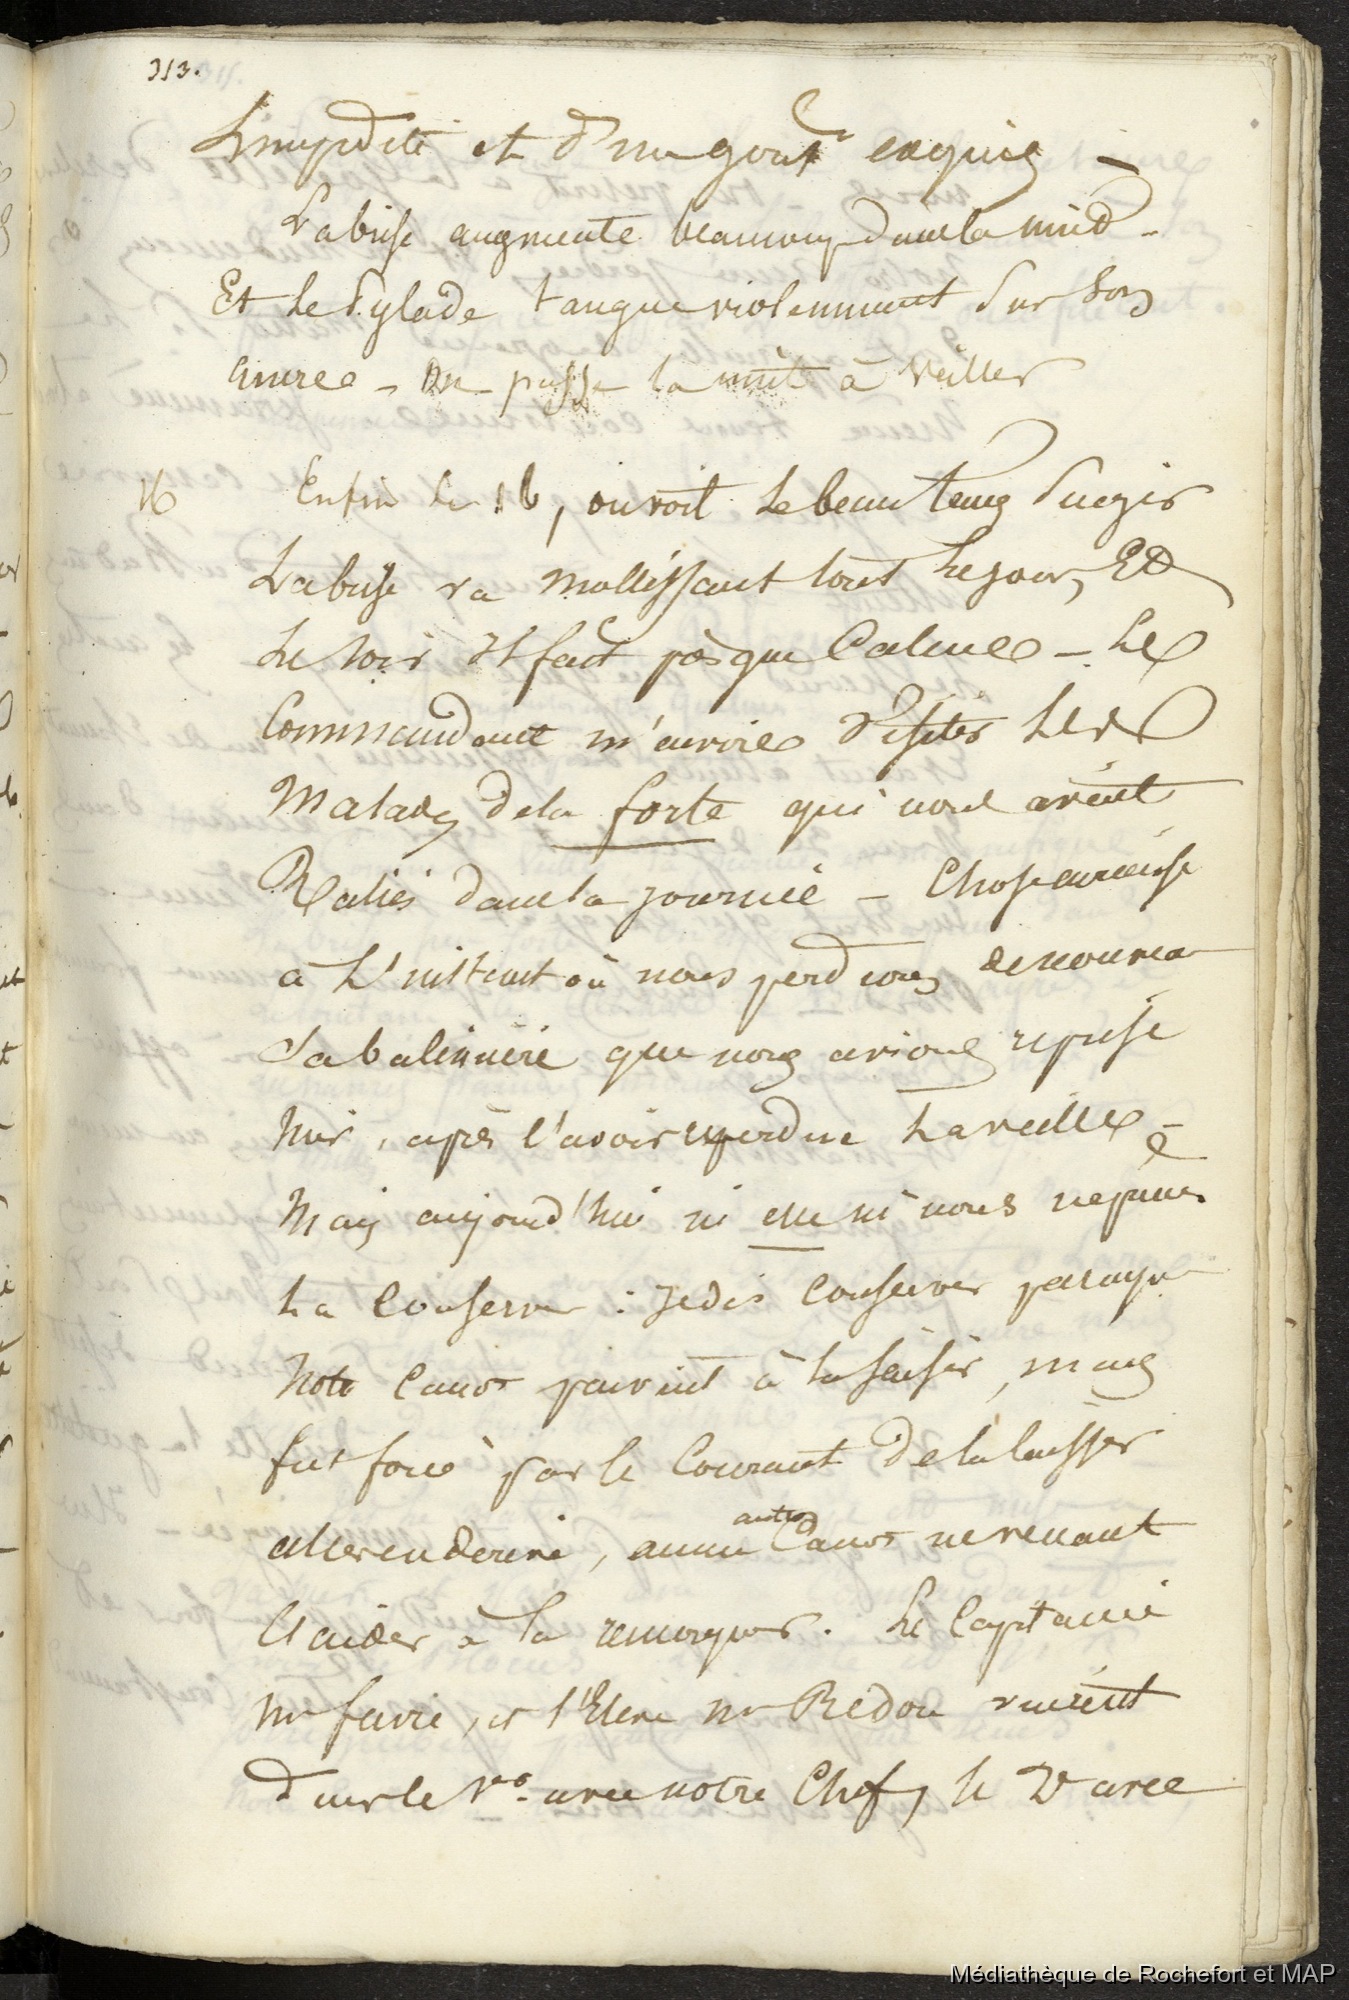 313.
Limpidité et d'un gout exquis –
La brise augmente beaucoup dans la nuid –
Et Le Pylade tangue violemment Sur Son
ancre – On passe la nuit à Veiller
16 Enfin le 16, on voit Le beau temps Surgir
La brise va mollissant tout Le jour, Et
Le soir Il fait presque Calme – Le
Commandant m'envoie Visiter Les
Malades de la forte qui nous avait
Raliés dans la journée – Chose
à L'instant où nous perdions de nouveau
Sa baleinière que nous avions reprise
hier, après l'avoir perdue La veille –
Mais aujourd'hui ni elle ni nous ne pumes
La Conserver : Je dis Conserver parceque
Notre Canot parvint à La Saisir, mais
fut forcé par le Courant de la laisser
aller en derive, aucun autre Canot ne venant
L'aider à la remorquer. Le Capitaine
Mr favre, et l'Eleve Mr Redon vinrent
dans le 1er avec notre Chef, le 2e avec
Médiathèque de Rochefort et MAP